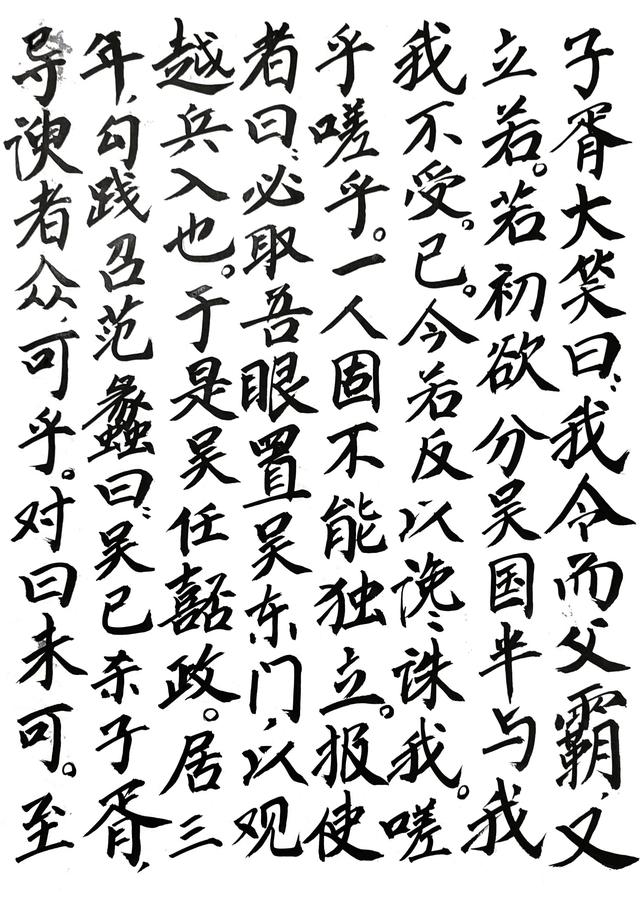 子胥大笑曰:我令而父霸,又
立若。若初欲分吴国半与我
我不受。已。今若反以谗:诛我。嗟
乎嗟乎。一人固不能独立。报使
者曰:必取吾眼置吴东门,以观
越兵入也。于是吴任嚭政。居三
年,勾践召范蠡曰:吴已杀子胥,
导谀者众,可乎。对曰未可。至